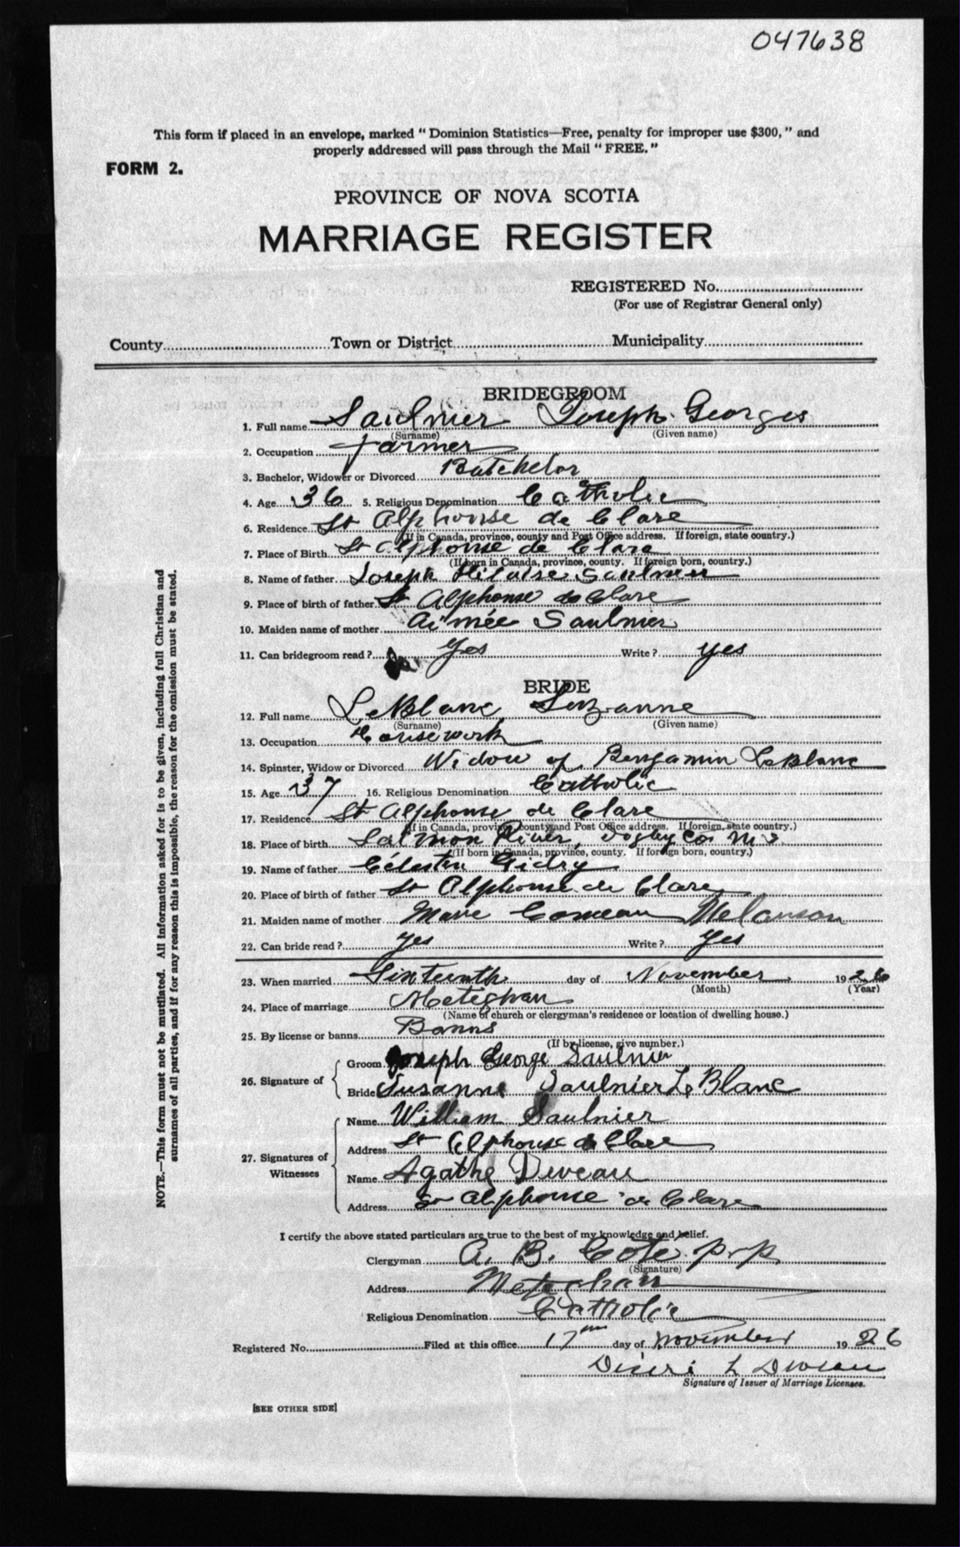 047638
This form if placed in an envelope, marked "Dominion Statistics—Free, penalty for improper use $300," and
properly addressed will pass through the Mail "FREE."
FORM 2.
PROVINCE OF NOVA SCOTIA
MARRIAGE REGISTER
REGISTERED No.
(For use of Registrar General only)
County Town or District Municipality
BRIDEGROOM
1. Full name Saulnier Joseph Georges
(Surname) (Given name)
2. Occupation Farmer
3. Bachelor, Widower or Divorced Batchelor
4. Age 36 5. Religious Denomination Catholic
6. Residence St Alphonse de Clare
(If in Canada, province, county and Post Office address. If foreign, state country.)
7. Place of Birth St Alphonse de Clare
(If born in Canada, province, county. If foreign born, country.)
8. Name of father Joseph Hilaire Saulnier
9. Place of birth of father St Alphonse de Clare
10. Maiden name of mother Aimée Saulnier
11. Can bridegroom read? Yes Write? yes
BRIDE
12. Full name LeBlanc Suzanne
(Surname) (Given name)
13. Occupation Housework
14. Spinster, Widow or Divorced Widow of Benjamin LeBlanc
15. Age 37 16. Religious Denomination Catholic
17. Residence St Alphonse de Clare
(If in Canada, province, county and Post Office address. If foreign, state country.)
18. Place of birth Salmon River, Digby Co. N.S
(If born in Canada, province, county. If foreign born, country.)
19. Name of father Célestin
20. Place of birth of father St Alphonse de Clare
21. Maiden name of mother Marie Comeau Melanson
22. Can bride read? yes Write? yes
23. When married Sixteenth day of November 1926
(Month) (Year)
24. Place of marriage Meteghan
(Name of church or clergyman's residence or location of dwelling house.)
25. By license or banns Banns
(If by license, give number.)
26. Signature of
Groom Joseph George Saulnier
Bride Susanne Saulnier LeBlanc
27. Signatures of Witnesses
Name William Saulnier
Address St Alphonse de Clare
Name Agathe Deveau
Address St Alphonse de Clare
I certify the above stated particulars are true to the best of my knowledge and belief.
Clergyman A. B. Cote p.p.
(Signature)
Address Meteghan
Religious Denomination Catholic
Registered No. Filed at this office 17 day of November 1926
L Deveau
Signature of Issuer of Marriage Licenses.
[SEE OTHER SIDE]
NOTE.—This form must not be mutilated. All information asked for is to be given, including full Christian and
surnames of all parties, and if for any reason this is impossible, the reason for the omission must be stated.